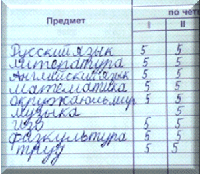 Предмет по четв
I II
Русский язык 5 5
Литература 5 5
Английский язык 5 5
Математика 5 5
Окружающ. мир 5 5
Музыка 5
ИЗО 5 5
Физкультура 5 5
Труд 5 5